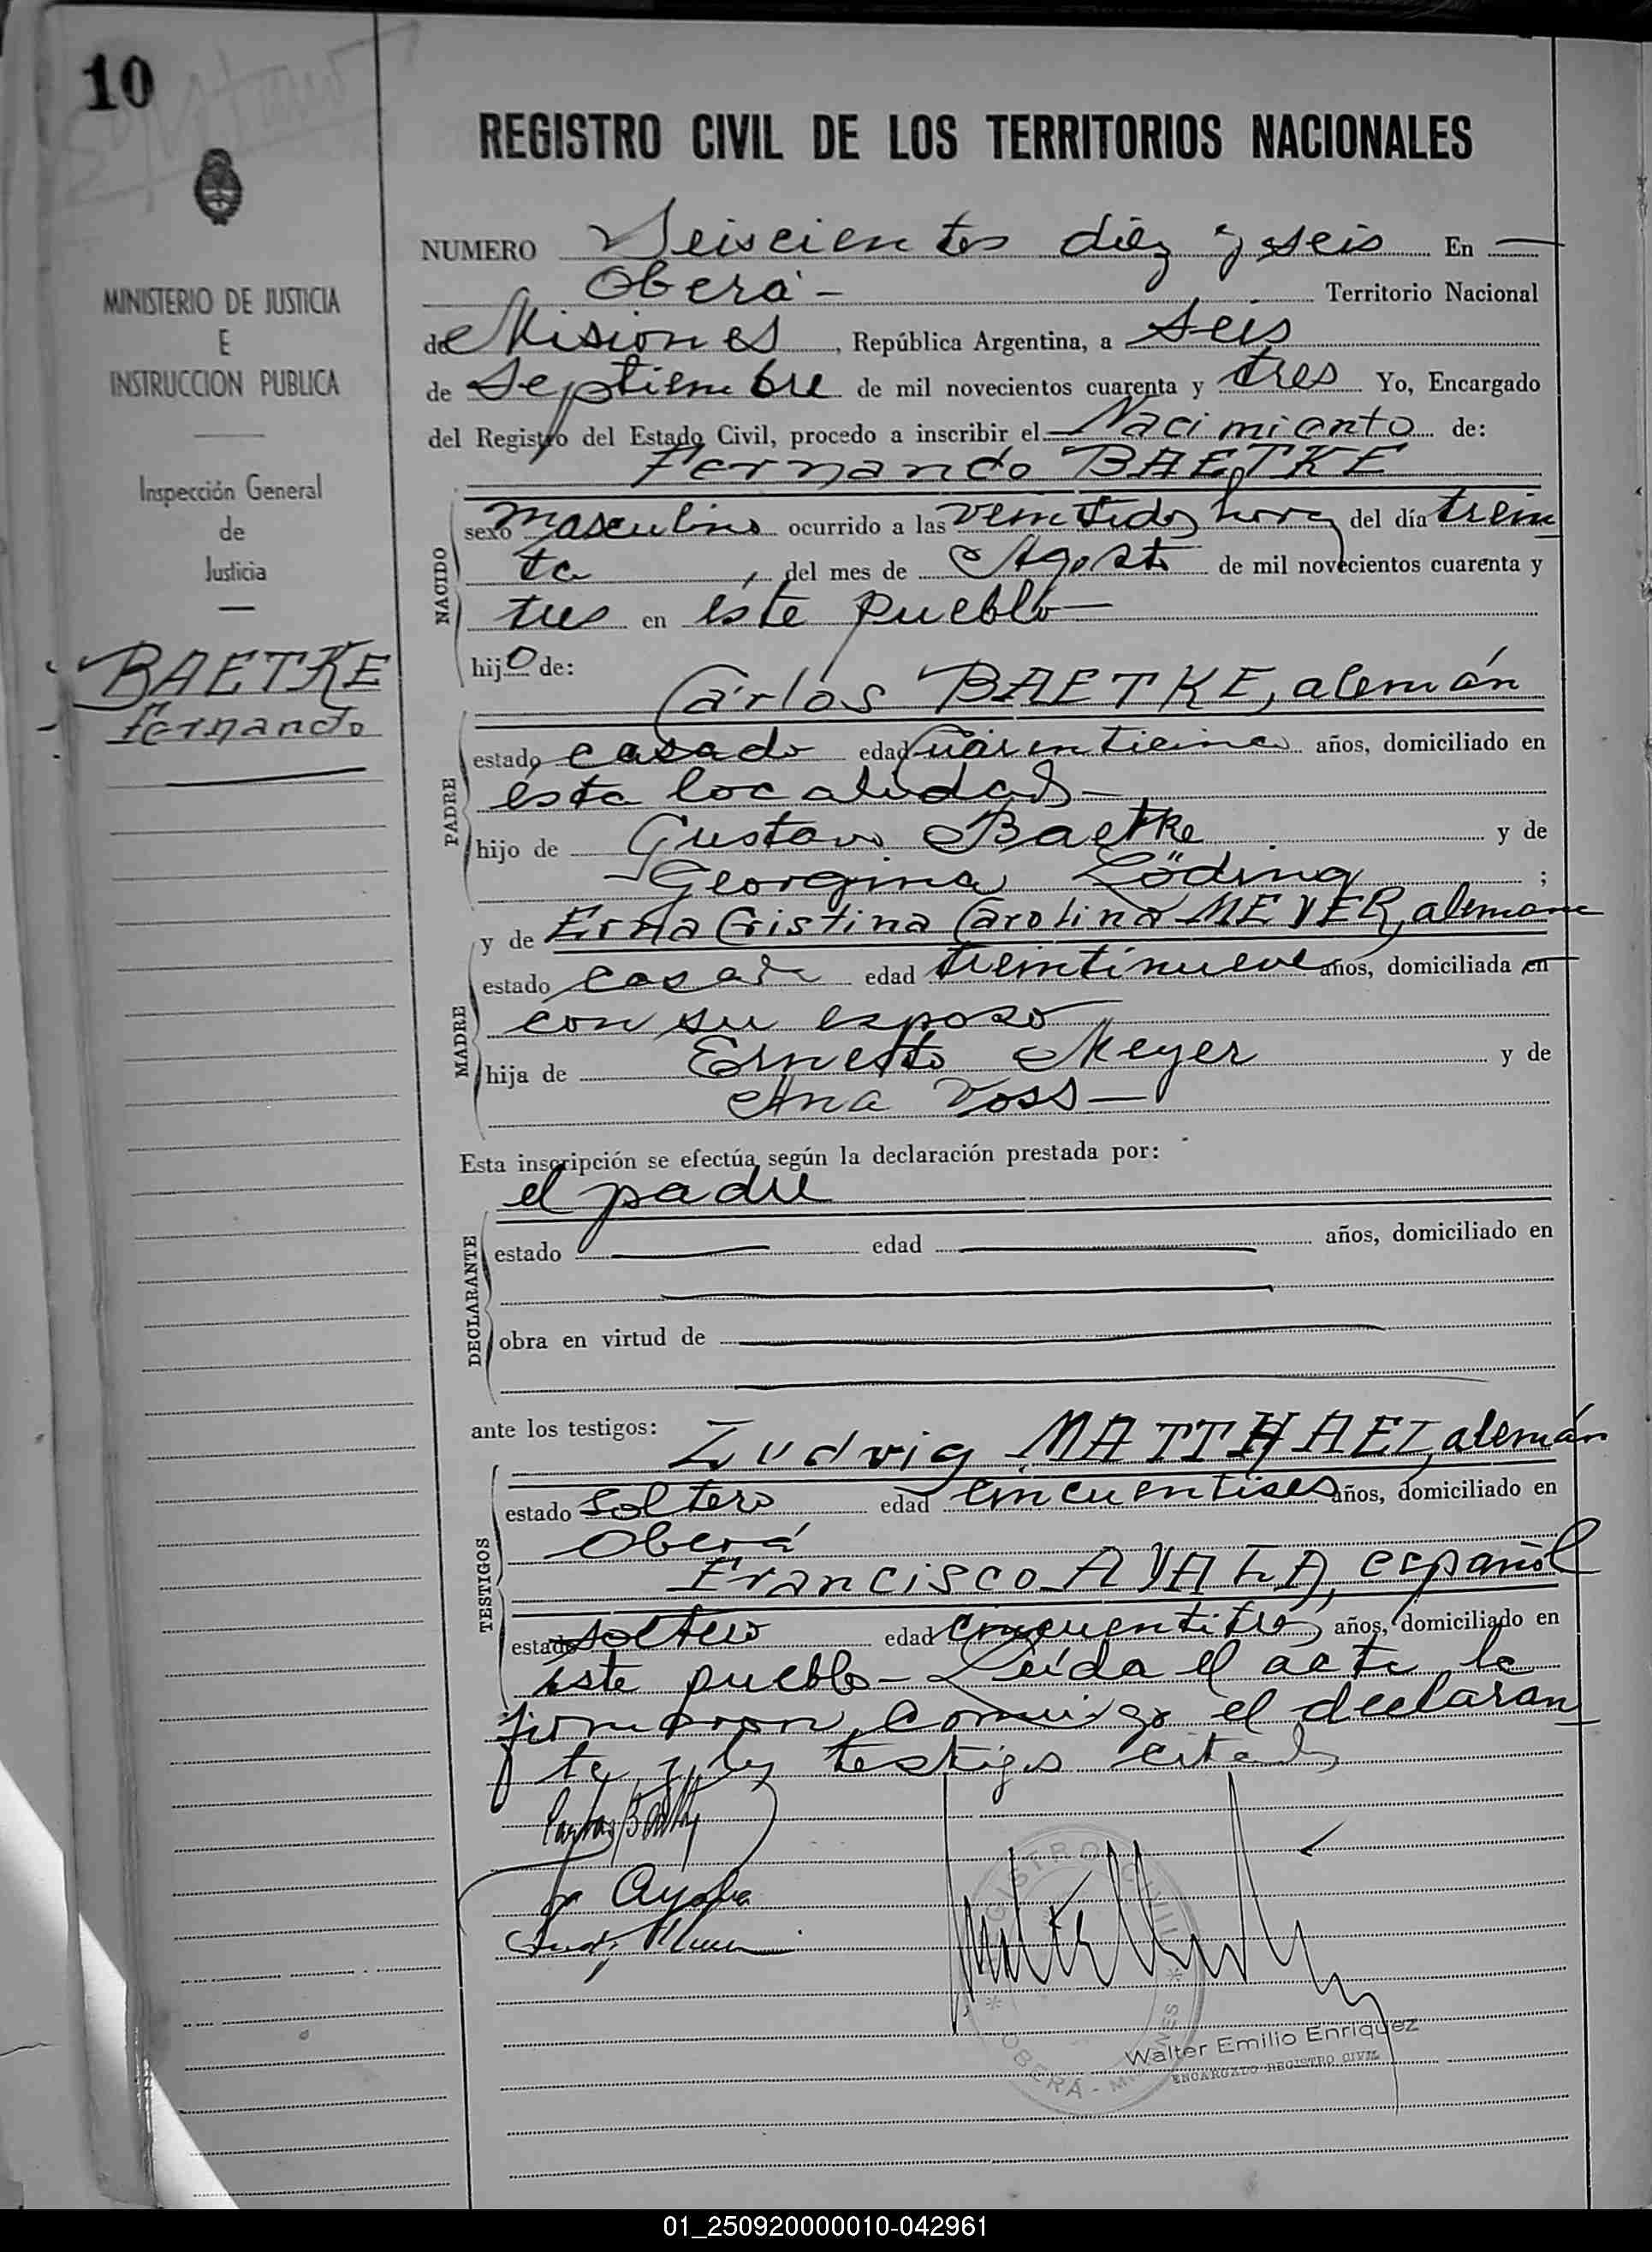 10
REGISTRO CIVIL DE LOS TERRITORIOS NACIONALES
MINISTERIO DE JUSTICIA
E
INSTRUCCION PUBLICA
Inspección General
de
Justicia
BAETKE
Fernando
NUMERO Seiscientos diez y seis En
Oberá - Territorio Nacional
de Misiones, República Argentina, a Seis
de Septiembre de mil novecientos cuarenta y tres Yo, Encargado
del Registro del Estado Civil, procedo a inscribir el Nacimiento de:
Fernando BAETKE
NACIDO
sexo masculino ocurrido a las veintidos horas del día trein
ta, del mes de Agosto de mil novecientos cuarenta y
tres en éste pueblo
hijo de:
Carlos BAETKE, alemán
PADRE
estado casado edad años, domiciliado en
ésta localidad
hijo de Gustavo Baetke y de
Georgina Löding ;
MADRE
y de Erna Cristina Carolina MEYER, alemana
estado casada edad treintinueve años, domiciliada en
con su esposo
hija de Ernesto Meyer y de
Ana Voss
Esta inscripción se efectúa según la declaración prestada por:
el padre
DECLARANTE
estado edad años, domiciliado en
obra en virtud de
ante los testigos:
Ludvig MATTHAEI, alemán
TESTIGOS
estado soltero edad cincuentiseis años, domiciliado en
Oberá
Francisco AYALA, español
estado soltero edad cincuentitres años, domiciliado en
éste pueblo - Leída el acta la
firmaron conmigo el declaran
te y los testigos citados
Ayala
REGISTRO CIVIL
OBERÁ - MISIONES
Walter Emilio Enriquez
ENCARGADO REGISTRO CIVIL
01_250920000010-042961